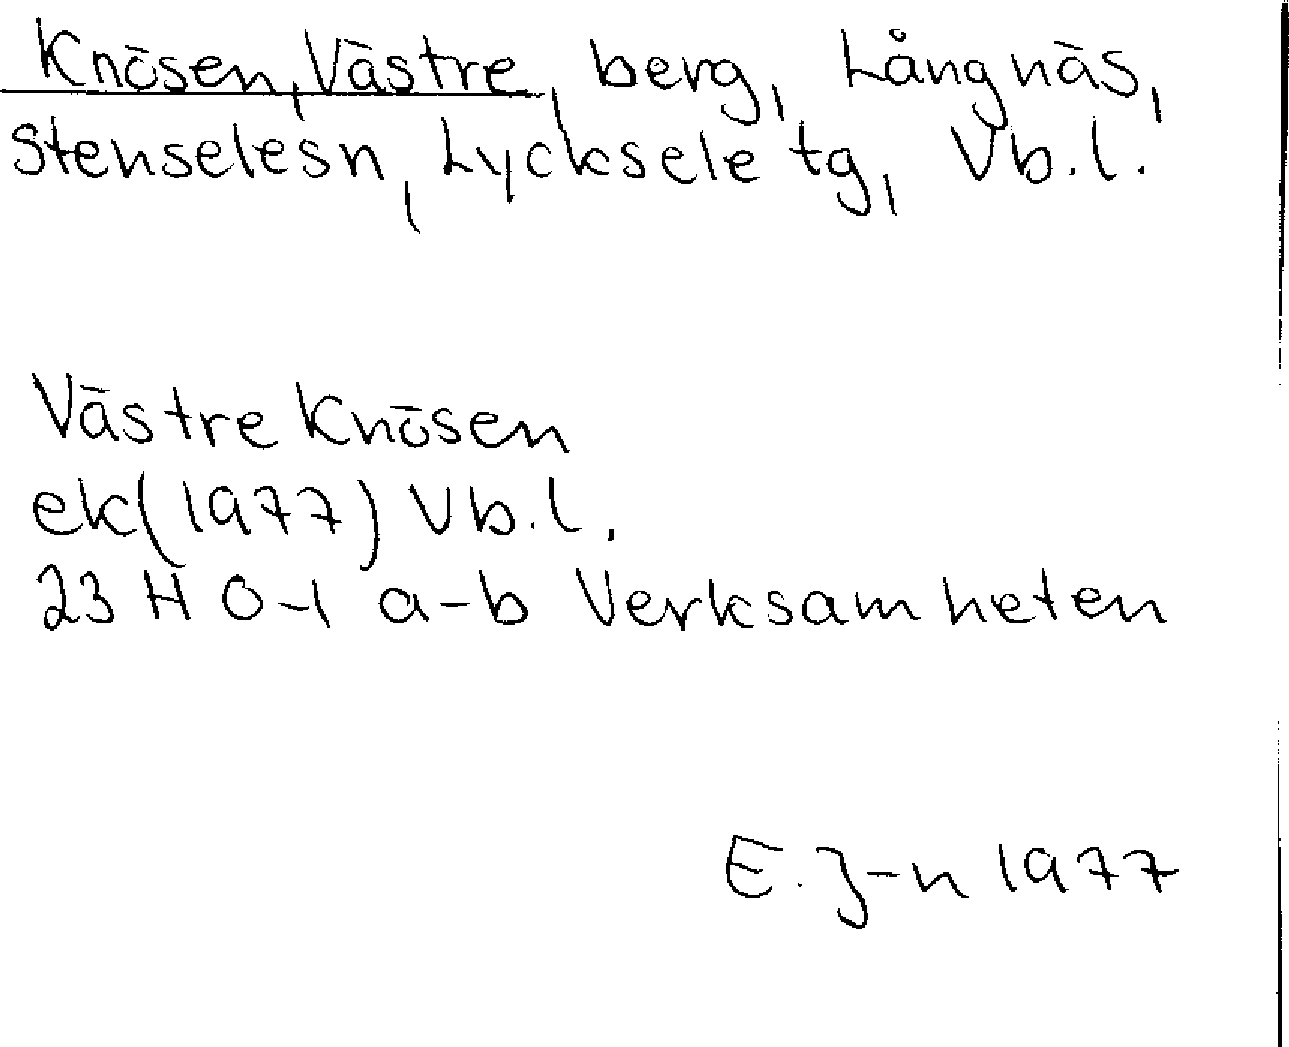 Knösen, Västre, berg, Långnäs,
Stensele sn, Lycksele tg, Vb.l.
Västre Knösen
ek (1977) Vb.l.
23 H 0-1 a-b Verksamheten
E. J-n 1977